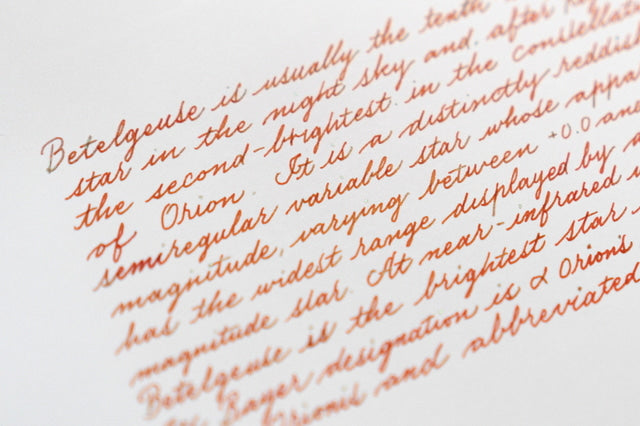 Betelgeuse is usually the tenth
star in the night sky and after
the second-brightest in the constellat
of Orion. It is a distinctly reddis
semiregular variable star whose appa
magnitude, varying between +0.0 an
has the widest range displayed by
magnitude star. At near-infrared
Betelgeuse is the brightest star
Bayer designation is α Orionis
Orionis and abbreviated